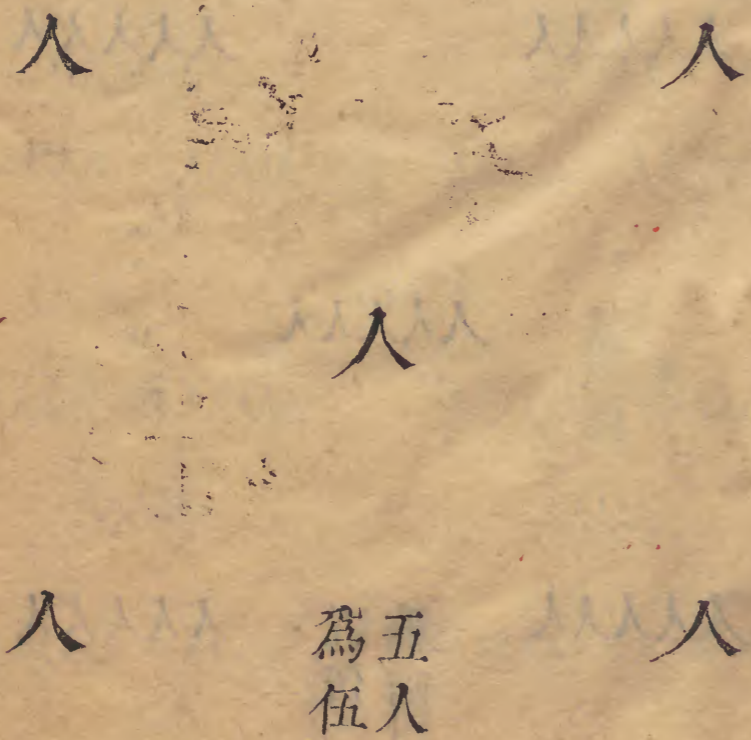 人 人
人
人 人
五人
爲伍